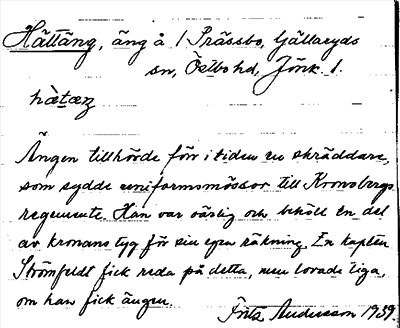 Hättäng, äng å 1 Prässbo, Gällaryds
sn, Östbo hd, Jönk. l.
hä̀tæŋ
Ängen tillhörde förr i tiden en skräddare,
som sydde uniformsmössor till Kronobergs
regemente. Han var oärlig och behöll en del
av kronans tyg för sin egen räkning. En kapten
Strömfeldt fick reda på detta, men lovade tiga,
om han fick ängen.
Fritz Andersson 1939.